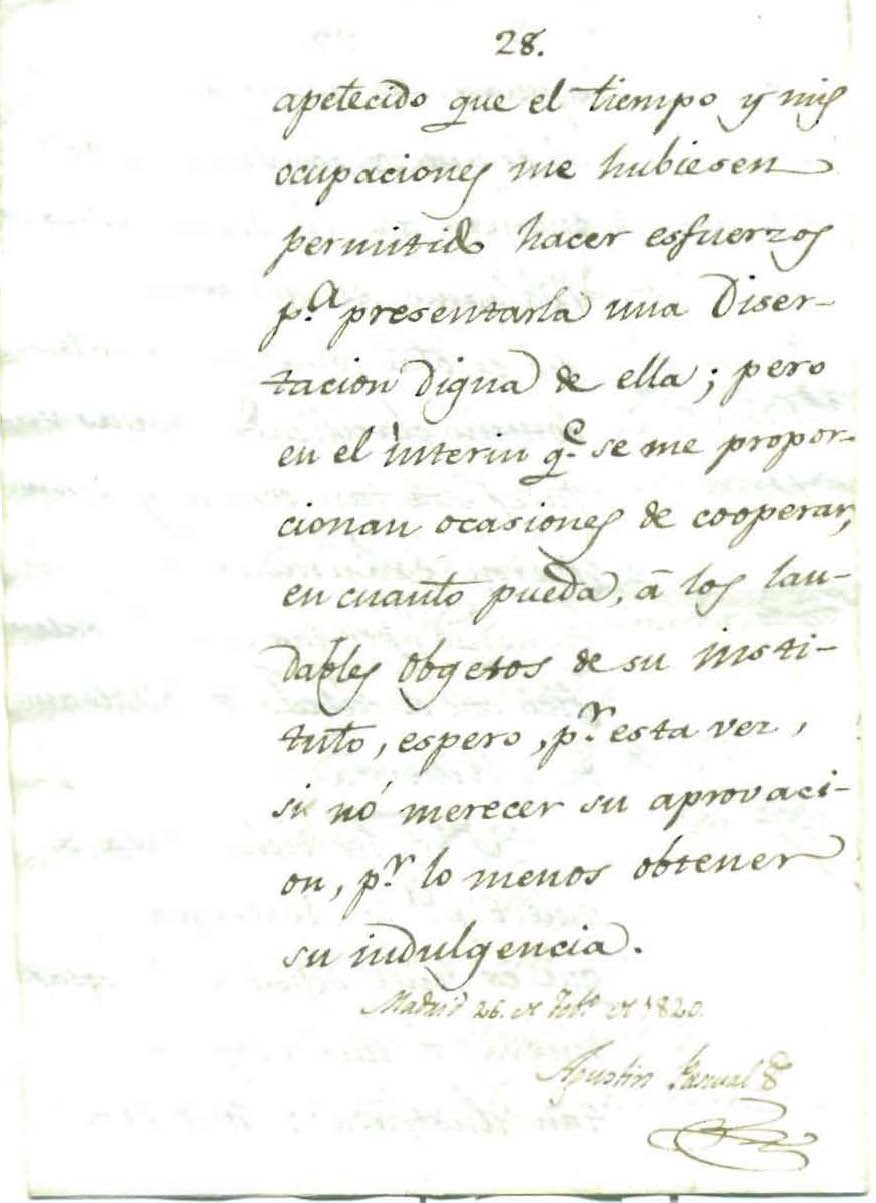 28.
apetecido que el tiempo y mis
ocupaciones me hubiesen
permitido hacer esfuerzos
p.ª presentarla una Diser-
tacion Digna de ella; pero
en el interin q.e se me propor-
cionan ocasiones de cooperar,
en cuanto pueda, á los lau-
dables obgetos de su insti-
tuto, espero, p.r esta vez,
si nó merecer su aprovaci-
on, p.r lo menos obtener
su indulgencia.
Madrid 26. de Feb.o de 1820.
Agustin Pascual